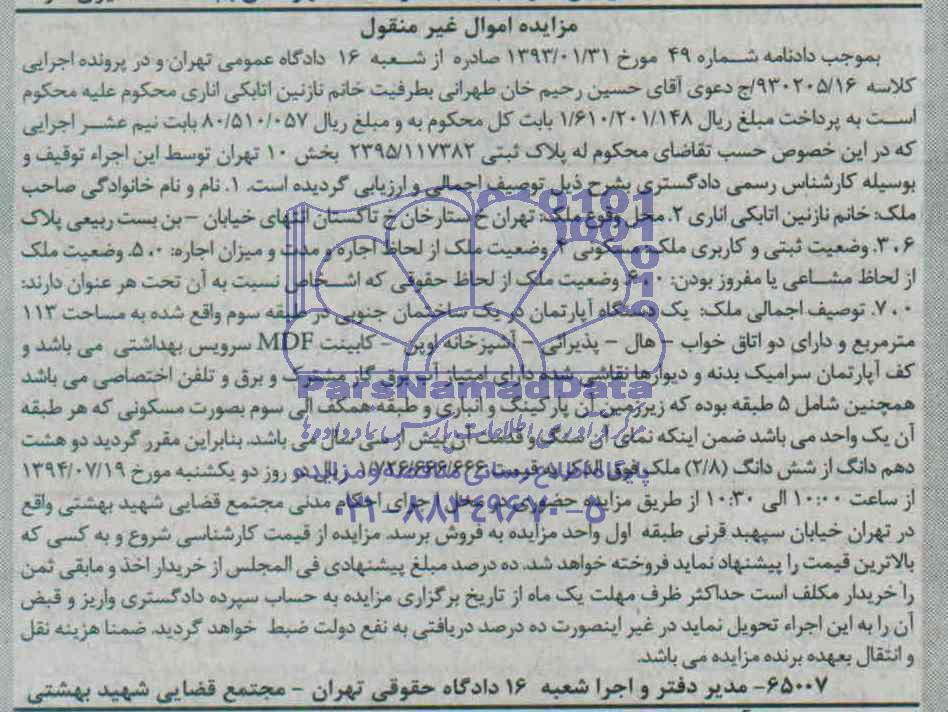 مزایده اموال غیر منقول
بموجب دادنامه شماره ۴۹ مورخ ۱۳۹۳/۰۱/۳۱ صادره از شعبه ۱۶ دادگاه عمومی تهران و در پرونده اجرایی
کلاسه ۹۳۰۲۰۵/۱۶/ج دعوی آقای حسین رحیم خان طهرانی بطرفیت خانم نازنین اتابکی اناری محکوم علیه محکوم
است به پرداخت مبلغ ریال ۱/۶۱۰/۲۰۱/۱۴۸ بابت کل محکوم به و مبلغ ریال ۸۰/۵۱۰/۰۵۷ بابت نیم عشر اجرایی
که در این خصوص حسب تقاضای محکوم له پلاک ثبتی ۲۳۹۵/۱۱۷۳۸۲ بخش ۱۰ تهران توسط این اجراء توقیف و
بوسیله کارشناس رسمی دادگستری بشرح ذیل توصیف اجمالی و ارزیابی گردیده است. ۱. نام و نام خانوادگی صاحب
ملک: خانم نازنین اتابکی اناری ۲. محل وقوع ملک: تهران خ ستارخان خ تاکستان انتهای خیابان – بن بست ربیعی پلاک
۶ ۳. وضعیت ثبتی و کاربری ملک: مسکونی ۴. وضعیت ملک از لحاظ اجاره و مدت و میزان اجاره: ۰ ۵. وضعیت ملک
از لحاظ مشاعی یا مفروز بودن: ۰ ۶. وضعیت ملک از لحاظ حقوقی که اشخاص نسبت به آن تحت هر عنوان دارند:
۰ ۷. توصیف اجمالی ملک: یک دستگاه آپارتمان در یک ساختمان جنوبی در طبقه سوم واقع شده به مساحت ۱۱۳
مترمربع و دارای دو اتاق خواب – هال – پذیرائی – آشپزخانه اوپن – کابینت MDF سرویس بهداشتی می باشد و
کف آپارتمان سرامیک بدنه و دیوارها نقاشی شده دارای امتیاز آب برق گاز مشترک و برق و تلفن اختصاصی می باشد
همچنین شامل ۵ طبقه بوده که زیرزمین آن پارکینگ و انباری و طبقه همکف الی سوم بصورت مسکونی که هر طبقه
آن یک واحد می باشد ضمن اینکه نمای آن سنگ و قدمت آن بیش از سی سال می باشد. بنابراین مقرر گردید دو هشت
دهم دانگ از شش دانگ (۲/۸) ملک فوق الذکر به قیمت ریال در روز دو یکشنبه مورخ ۱۳۹۴/۰۷/۱۹
از ساعت ۱۰:۰۰ الی ۱۰:۳۰ از طریق مزایده حضوری در محل اجرای احکام مدنی مجتمع قضایی شهید بهشتی واقع
در تهران خیابان سپهبد قرنی طبقه اول واحد مزایده به فروش برسد. مزایده از قیمت کارشناسی شروع و به کسی که
بالاترین قیمت را پیشنهاد نماید فروخته خواهد شد. ده درصد مبلغ پیشنهادی فی المجلس از خریدار اخذ و مابقی ثمن
را خریدار مکلف است حداکثر ظرف مهلت یک ماه از تاریخ برگزاری مزایده به حساب سپرده دادگستری واریز و قبض
آن را به این اجراء تحویل نماید در غیر اینصورت ده درصد دریافتی به نفع دولت ضبط خواهد گردید. ضمنا هزینه نقل
و انتقال بعهده برنده مزایده می باشد.
۶۵۰۰۷- مدیر دفتر و اجرا شعبه ۱۶ دادگاه حقوقی تهران – مجتمع قضایی شهید بهشتی
ParsNamadData
پایگاه اطلاع رسانی مناقصه و مزایده
۰۲۱-۸۸۳۴۹۶۷۰-۵